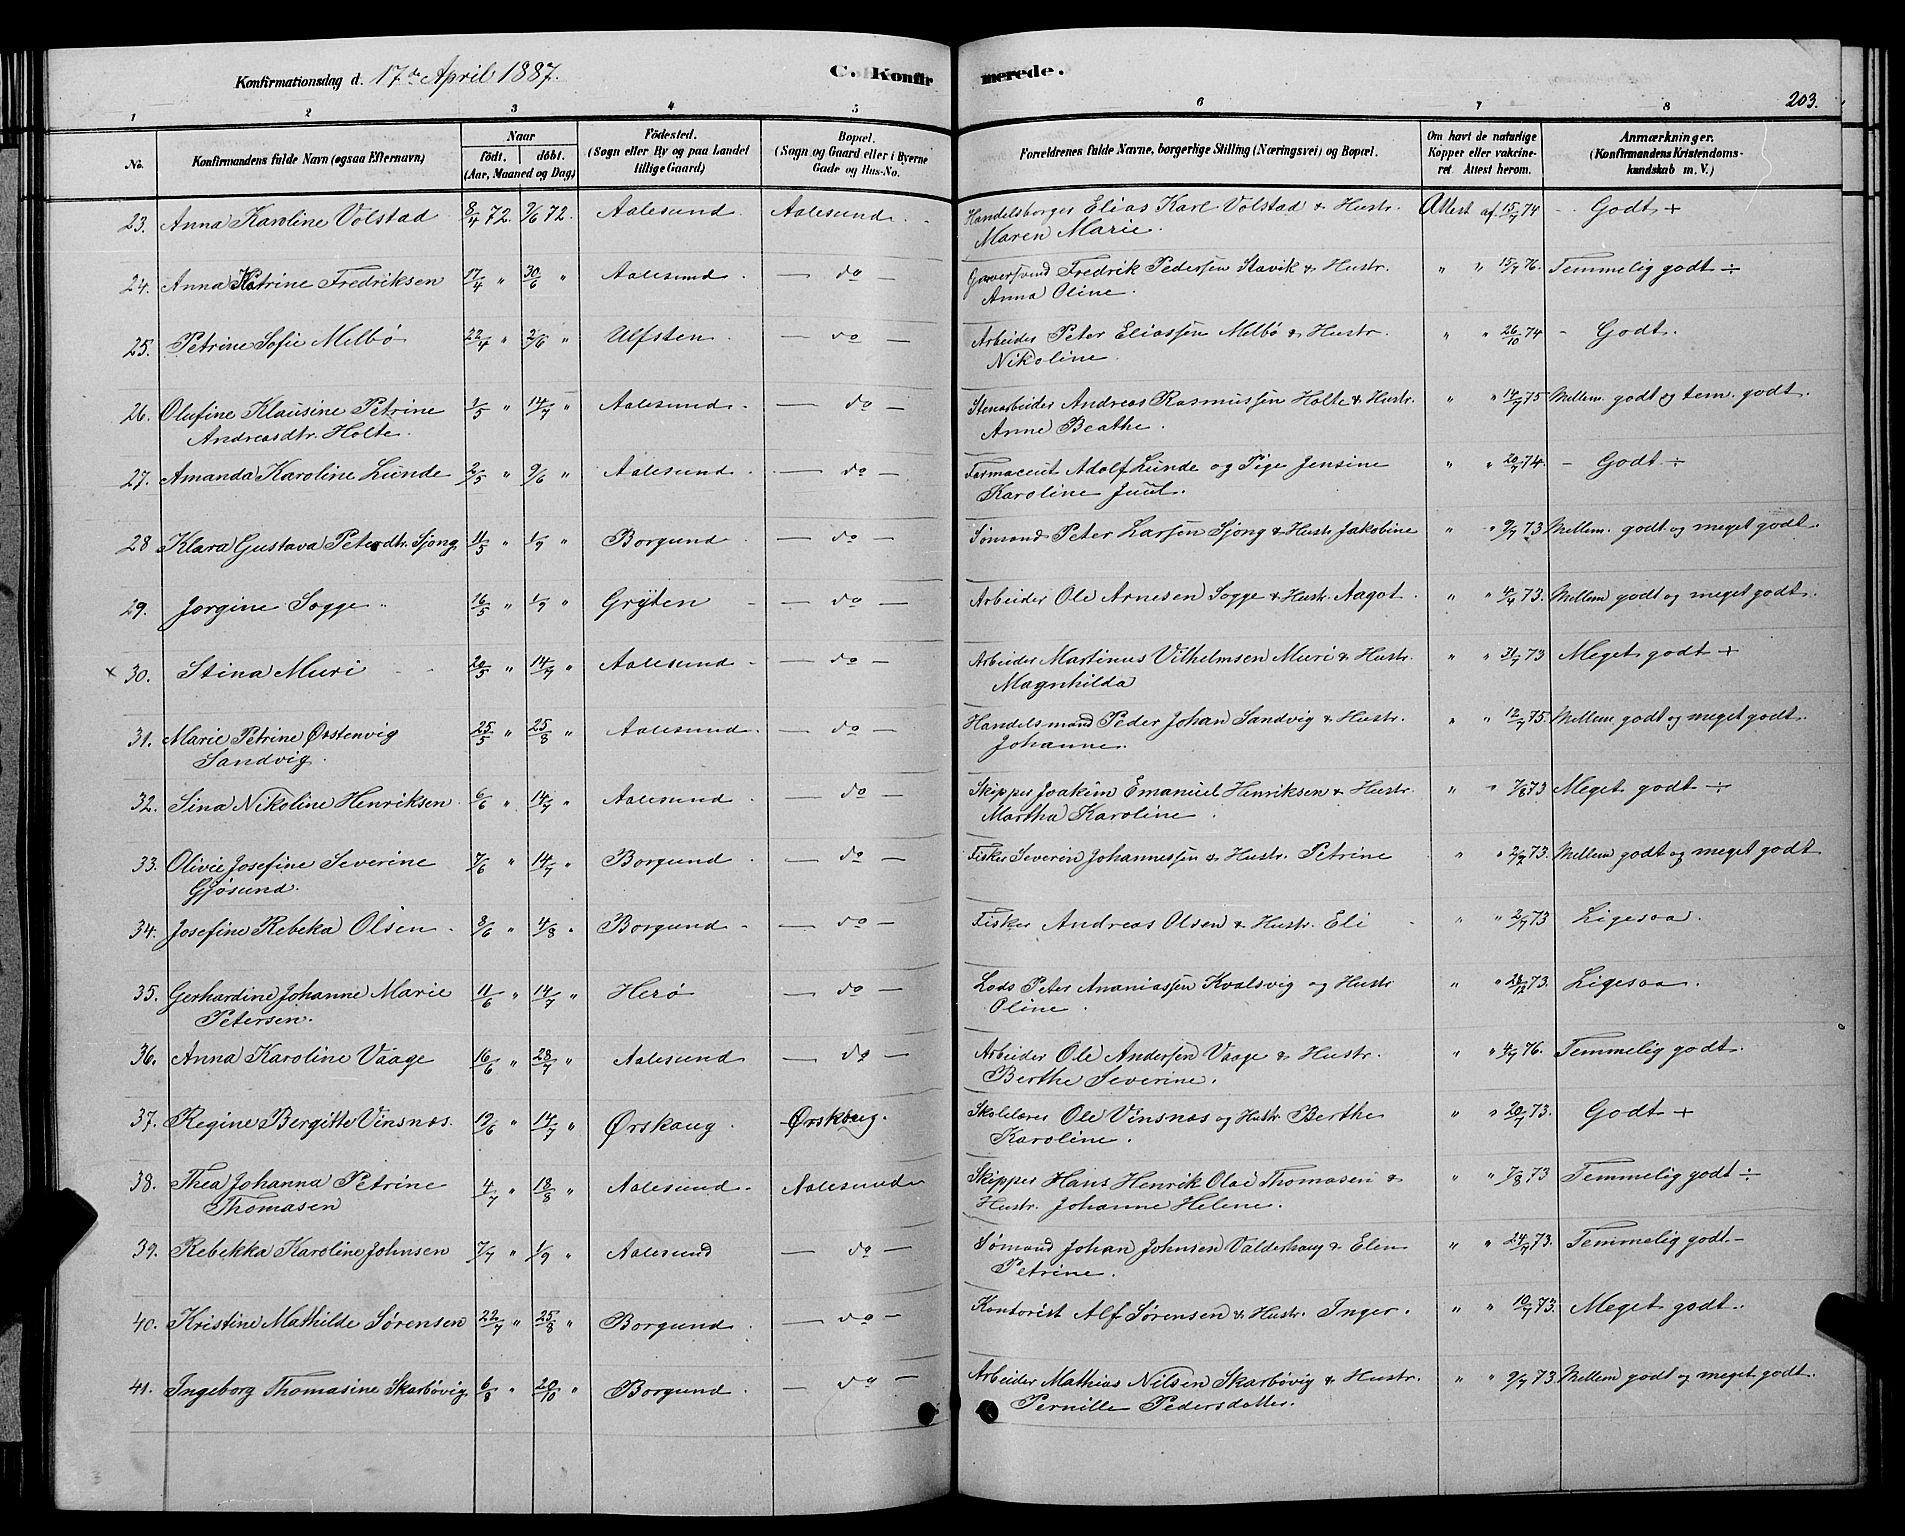 Konfirmationsdag d. 17de April 1887.
C. Konfirmerede.
203.
1 2 3 4 5 6 7 8
No.
Konfirmandens fulde Navn (ogsaa Efternavn)
Naar
födt. döbt.
(Aar, Maaned og Dag)
Födested.
(Sogn eller By og paa Landet
tillige Gaard)
Bopæl.
(Sogn og Gaard eller i Byerne
Gade og Hus-No.
Forældrenes fulde Navne, borgerlige Stilling (Næringsvei) og Bopæl.
Om havt de naturlige
Kopper eller vakcine-
ret. Attest herom.
Anmærkninger.
(Konfirmandens Kristendoms-
kundskab m. V.)
23. Anna Karoline Volstad 8/4 72. 9/6 72. Aalesund. Aalesund. Handelsborger Elias Karl Volstad & Hustr. Attest af 15/7 74 - Godt +
Maren Marie.
24. Anna Katrine Fredriksen 17/4 " 30/6 " Aalesund. — do — Fredrik Pedersen Slavik & Hustr. " " 15/7 76. Temmelig godt ÷
Anna Oline.
25. Petrine Sofie Melbö 22/4 " 2/6 " Ulfsten. — do — Arbeider Peter Eliassen Melbö & Hustr. " " 26/10 74 - Godt.
Nikoline.
26. Olufine Klausine Petrine 1/5 " 14/7 " Aalesund. — do — Stenarbeider Andreas Rasmussen Holte & Hustr. " " 14/7 75 Mellem godt og tem. godt.
Andreasdtr. Holte. Anne Beathe.
27. Amanda Karoline Lunde 2/5 " 9/6 " Aalesund. — do — Farmaceut Adolf Lunde og Pige Jensine " " 20/7 74. - Godt ÷
Karoline Juul.
28 Klara Gustava Petersdtr. Sjong 11/5 " 1/9 " Borgund. — do — Sømand Peter Larsen Sjong & Hustr. Jakobine " " 9/7 73 Mellem. godt og meget godt.
29. Jorgine Sogge 16/5 " 1/9 " Grytten — do — Arbeider Ole Arnesen Sogge & Hustr. Aagot. " " 4/4 73. Mellem godt og meget godt.
× 30. Stina Muri 20/5 " 14/7 " Aalesund. — do — Arbeider Martinus Vilhelmsen Muri & Hustr. " " 31/7 73 Meget godt +
Magnhilda
31. Marie Petrine Ørstenvig 25/5 " 25/8 " Aalesund. — do — Handelsmand Peder Johan Sandvig & Hustr. " " 12/7 75. Mellem godt og meget godt.
Sandvig. Johanne.
32. Sina Nikoline Henriksen 6/6 " 14/7 " Aalesund — do — Skipper Joakim Emanuel Henriksen & Hustr. " " 7/8 73 Meget godt ÷
Martha Karoline.
33. Olivie Josefine Severine 7/6 " 14/7 " Borgund. — do — Fisker Severin Johannessen & Hustr. Petrine " " 2/7 73. Mellem godt og meget godt
Gjøsund.
34. Josefine Rebeka Olsen 8/6 " 4/8 " Borgund. — do — Fisker Andreas Olsen & Hustr. Eli " " 2/7 73 Ligesaa.
35. Gerhardine Johanne Marie 11/6 " 14/7 " Herö — do — Lods Peter Ananiassen Kvalsvig og Hustr " " 28/12 73. Ligesaa.
Petersen. Oline.
36. Anna Karoline Vaage 16/6 " 28/7 " Aalesund — do — Arbeider Ole Andersen Vaage & Hustr. " " 4/7 76. Temmelig godt.
Berthe Severine.
37. Regine Bergitte Vinsnæs. 19/6 " 14/7 " Ørskoug. Ørskoug. Skolelærer Ole Vinsnæs og Hustr Berthe " " 20/7 73. Godt +
Karoline.
38. Thea Johanna Petrine 4/7 " 18/8 " Aalesund. Aalesund Skipper Hans Henrik Olai Thomasen & " " 7/8 73 Temmelig godt ÷
Thomasen Hustr. Johanne Helene.
39. Rebekka Karoline Johnsen 7/7 " 1/9 " Aalesund — do — Sømand Johan Johnsen Valderhaug & Elen " " 24/7 73. Temmelig godt -
Petrine.
40. Kristine Mathilde Sørensen 22/7 " 25/8 " Borgund. — do — Kontorist Alf Sørensen & Hustr. Inger. " " 10/7 73. Meget godt.
41. Ingeborg Thomasine Skarbövig 6/8 " 20/10 " Borgund — do — Arbeider Mathias Nilsen Skarbövig & Hustr. " " 9/7 73. Mellem godt og meget godt.
Pernille Pedersdatter.